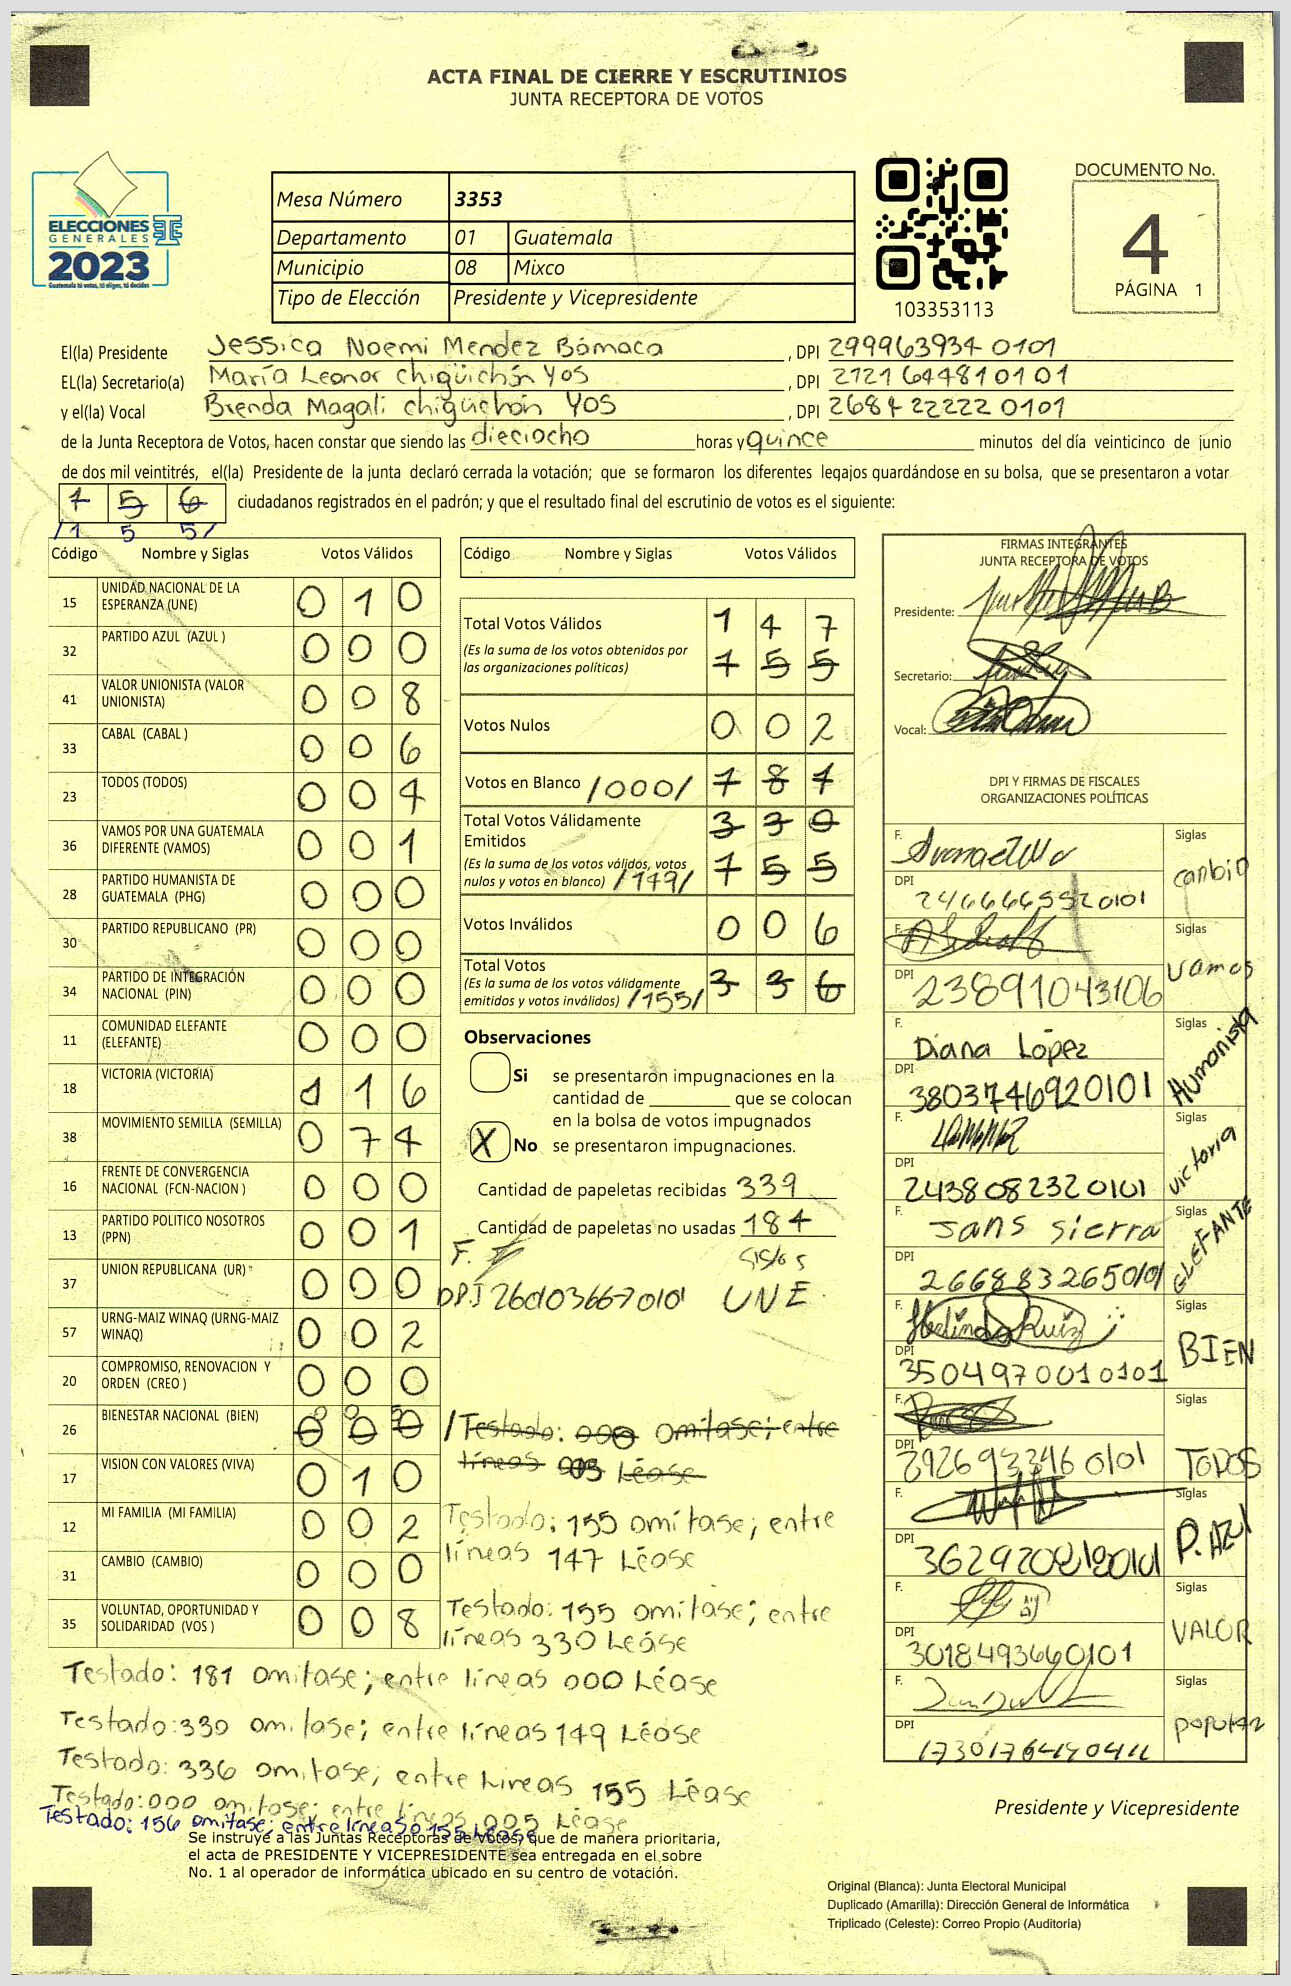 ACTA FINAL DE CIERRE Y ESCRUTINIOS
JUNTA RECEPTORA DE VOTOS
ELECCIONES
GENERALES
2023
Guatemala tú votas, tú eliges, tú decides
Mesa Número 3353
Departamento 01 Guatemala
Municipio 08 Mixco
Tipo de Elección Presidente y Vicepresidente
103353113
DOCUMENTO No.
4
PÁGINA 1
El(la) Presidente Jessica Noemi Mendez Bámaca , DPI 299963934 0101
EL(la) Secretario(a) María Leonor chigüichón Yos , DPI 2721644810101
y el(la) Vocal Brenda Magali chigüichón YOS , DPI 2684 22222 0101
de la Junta Receptora de Votos, hacen constar que siendo las dieciocho horas y quince minutos del día veinticinco de junio
de dos mil veintitrés, el(la) Presidente de la junta declaró cerrada la votación; que se formaron los diferentes legajos guardándose en su bolsa, que se presentaron a votar
1 5 6 ciudadanos registrados en el padrón; y que el resultado final del escrutinio de votos es el siguiente:
/1 5 5/
Código Nombre y Siglas Votos Válidos
15 UNIDAD NACIONAL DE LA ESPERANZA (UNE) 0 1 0
32 PARTIDO AZUL (AZUL ) 0 0 0
41 VALOR UNIONISTA (VALOR UNIONISTA) 0 0 8
33 CABAL (CABAL ) 0 0 6
23 TODOS (TODOS) 0 0 4
36 VAMOS POR UNA GUATEMALA DIFERENTE (VAMOS) 0 0 1
28 PARTIDO HUMANISTA DE GUATEMALA (PHG) 0 0 0
30 PARTIDO REPUBLICANO (PR) 0 0 0
34 PARTIDO DE INTEGRACIÓN NACIONAL (PIN) 0 0 0
11 COMUNIDAD ELEFANTE (ELEFANTE) 0 0 0
18 VICTORIA (VICTORIA) 1 6
38 MOVIMIENTO SEMILLA (SEMILLA) 0 7 4
16 FRENTE DE CONVERGENCIA NACIONAL (FCN-NACION ) 0 0 0
13 PARTIDO POLITICO NOSOTROS (PPN) 0 0 1
37 UNION REPUBLICANA (UR) 0 0 0
57 URNG-MAIZ WINAQ (URNG-MAIZ WINAQ) 0 0 2
20 COMPROMISO, RENOVACION Y ORDEN (CREO ) 0 0 0
26 BIENESTAR NACIONAL (BIEN) 0 0 0
17 VISION CON VALORES (VIVA) 0 1 0
12 MI FAMILIA (MI FAMILIA) 0 0 2
31 CAMBIO (CAMBIO) 0 0 0
35 VOLUNTAD, OPORTUNIDAD Y SOLIDARIDAD (VOS ) 0 0 8
Código Nombre y Siglas Votos Válidos
Total Votos Válidos 1 4 7
(Es la suma de los votos obtenidos por las organizaciones políticas) 1 5 5
Votos Nulos 0 0 2
Votos en Blanco /000/ 1 8 1
Total Votos Válidamente Emitidos 3 3 0
(Es la suma de los votos válidos, votos nulos y votos en blanco) /149/ 1 5 5
Votos Inválidos 0 0 6
Total Votos
(Es la suma de los votos válidamente emitidos y votos inválidos) /155/ 3 3 6
Observaciones
Si se presentaron impugnaciones en la
cantidad de ________ que se colocan
en la bolsa de votos impugnados
X No se presentaron impugnaciones.
Cantidad de papeletas recibidas 339
Cantidad de papeletas no usadas 184
F.
UNE
/Testado: 000 omítase; entre
líneas 005 Léase
Testado: 155 omítase; entre
líneas 147 Léase
Testado: 155 omítase; entre
líneas 330 Léase
Testado: 181 omítase; entre líneas 000 Léase
Testado: 330 omítase; entre líneas 149 Léase
Testado: 336 omítase; entre Lineas 155 Léase
Testado: 000 omítase; entre líneas 005 Léase
Testado: 156 omítase; entre líneas 155 Léase
FIRMAS INTEGRANTES
JUNTA RECEPTORA DE VOTOS
Presidente:
Secretario:
Vocal:
DPI Y FIRMAS DE FISCALES
ORGANIZACIONES POLÍTICAS
F. Siglas
cambio
DPI 2466665520101
F. Siglas
vamos
DPI 23891043106
F. Diana López Siglas
Humanista
DPI 3803746920101
F. Siglas
victoria
DPI 2438082320101
F. Jans Sierra Siglas
ELEFANTE
DPI 2668832650101
F. Ruiz Siglas
BIEN
DPI 3504970010101
F. Siglas
TODOS
DPI 2926933460101
F. Siglas
P. AZUL
DPI
F. Siglas
VALOR
DPI 3018493660101
F. Siglas
DPI
Presidente y Vicepresidente
Se instruye a las Juntas Receptoras de Votos, que de manera prioritaria,
el acta de PRESIDENTE Y VICEPRESIDENTE sea entregada en el sobre
No. 1 al operador de informática ubicado en su centro de votación.
Original (Blanca): Junta Electoral Municipal
Duplicado (Amarilla): Dirección General de Informática
Triplicado (Celeste): Correo Propio (Auditoría)